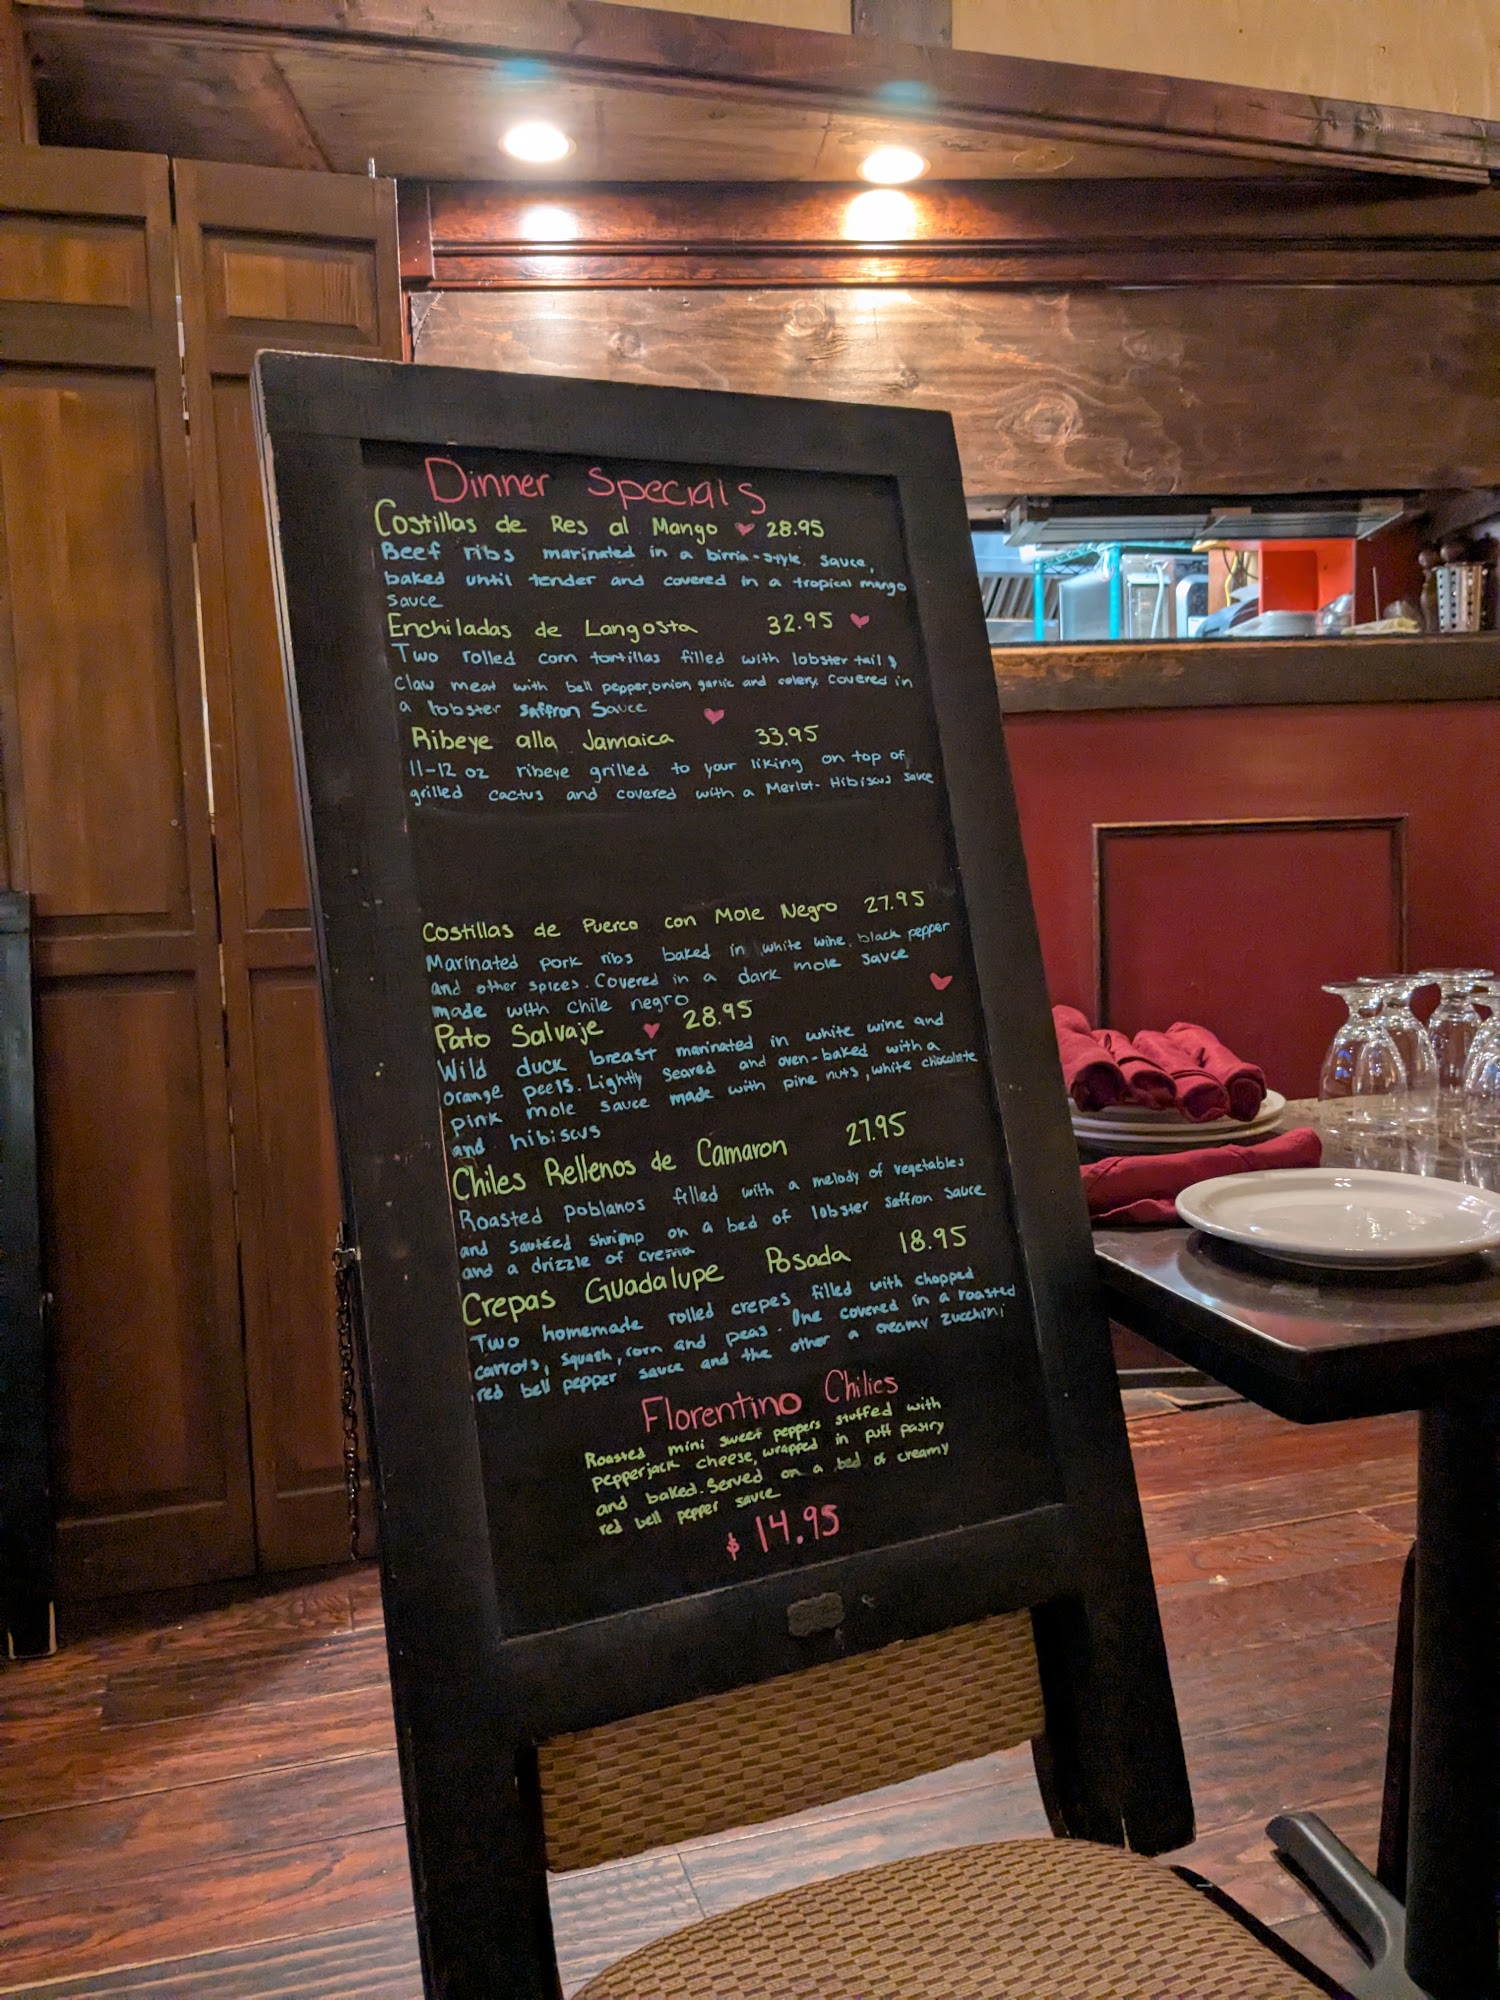 Dinner Specials
Costillas de Res al Mango 28.95
Beef ribs marinated in a birria-style sauce,
baked until tender and covered in a tropical mango
sauce
Enchiladas de Langosta 32.95
Two rolled corn tortillas filled with lobster tail &
claw meat with bell pepper, onion garlic and celery. Covered in
a lobster saffron sauce
Ribeye alla Jamaica 33.95
11-12 oz ribeye grilled to your liking on top of
grilled cactus and covered with a Merlot-Hibiscus sauce
Costillas de Puerco con Mole Negro 27.95
Marinated pork ribs baked in white wine, black pepper
and other spices. Covered in a dark mole sauce
made with chile negro
Pato Salvaje 28.95
Wild duck breast marinated in white wine and
orange peels. Lightly seared and oven-baked with a
pink mole sauce made with pine nuts, white chocolate
and hibiscus
Chiles Rellenos de Camaron 27.95
Roasted poblanos filled with a melody of vegetables
and sautéed shrimp on a bed of lobster saffron sauce
and a drizzle of crema
Crepas Guadalupe Posada 18.95
Two homemade rolled crepes filled with chopped
carrots, squash, corn and peas. One covered in a roasted
red bell pepper sauce and the other a creamy zucchini
Florentino Chilies
Roasted mini sweet peppers stuffed with
pepperjack cheese, wrapped in puff pastry
and baked. Served on a bed of creamy
red bell pepper sauce
$14.95